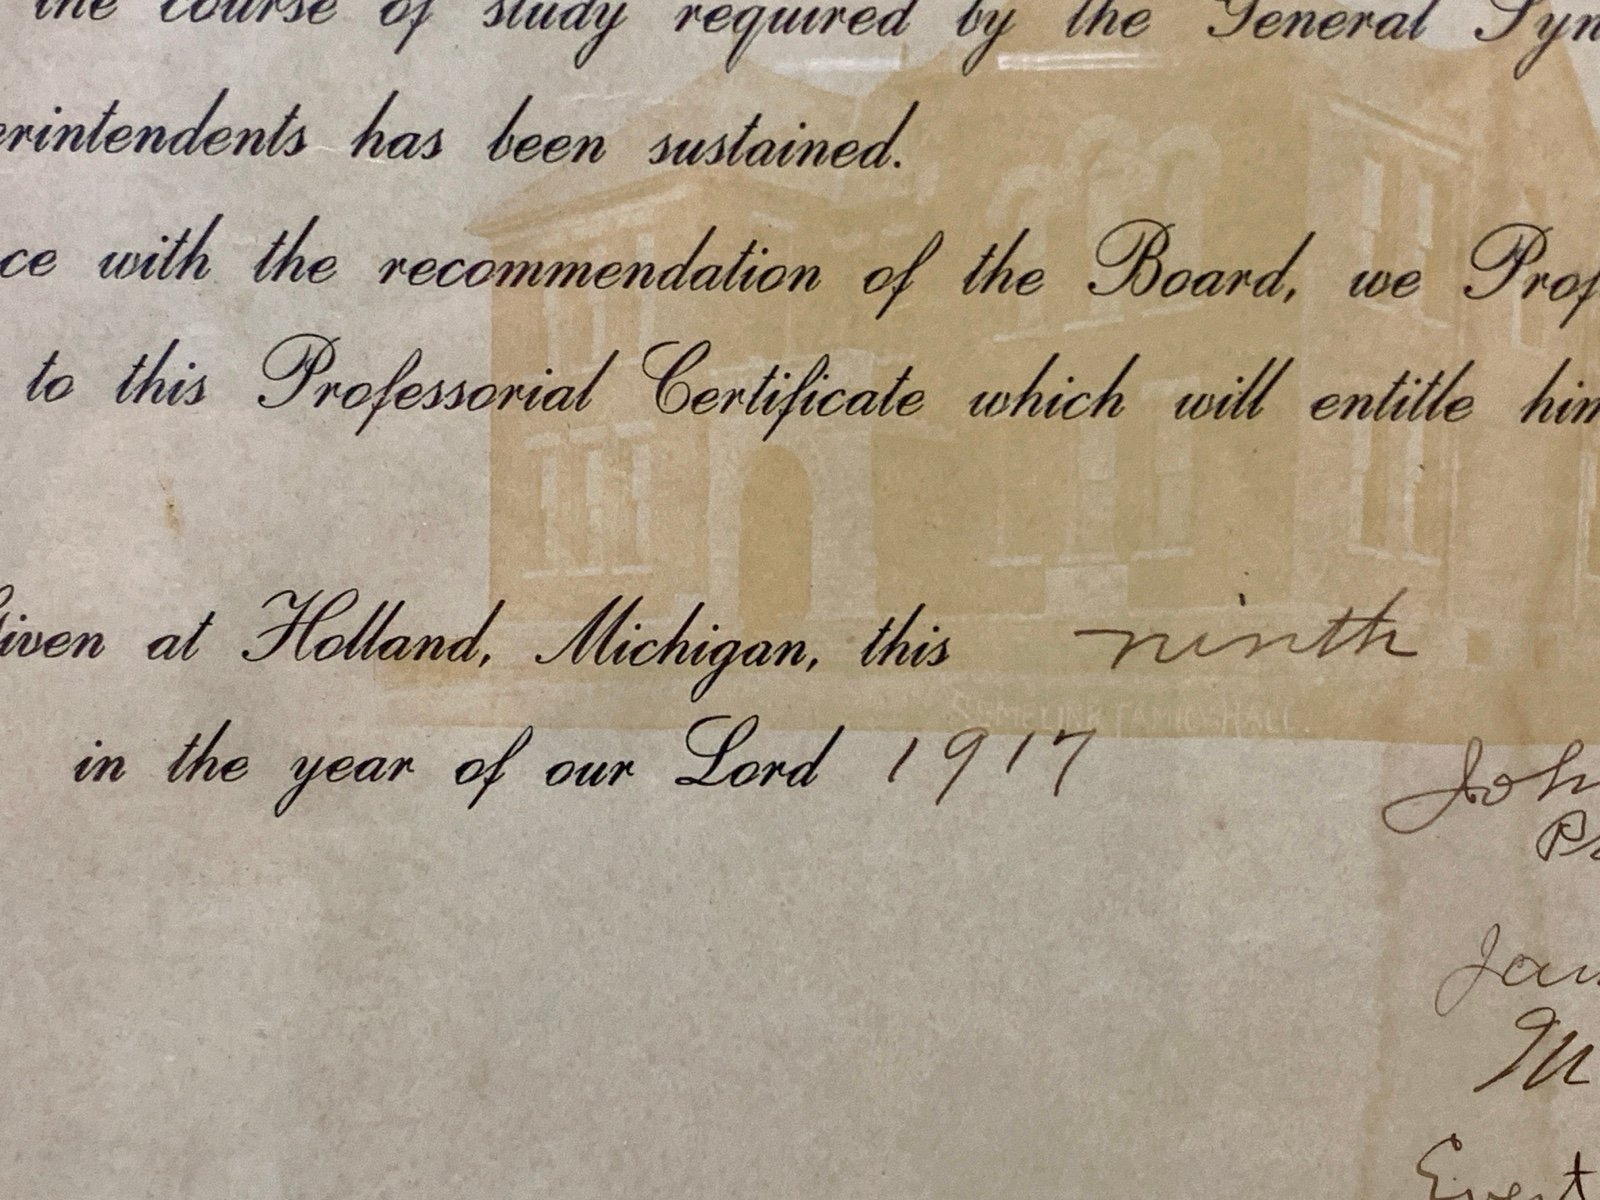 the course of study required by the General Syn
erintendents has been sustained.
ce with the recommendation of the Board, we Prof
to this Professorial Certificate which will entitle him
Given at Holland, Michigan, this ninth
SEMELINK FAMILY HALL
in the year of our Lord 1917
Joh
Pr
Jam
M
Evert